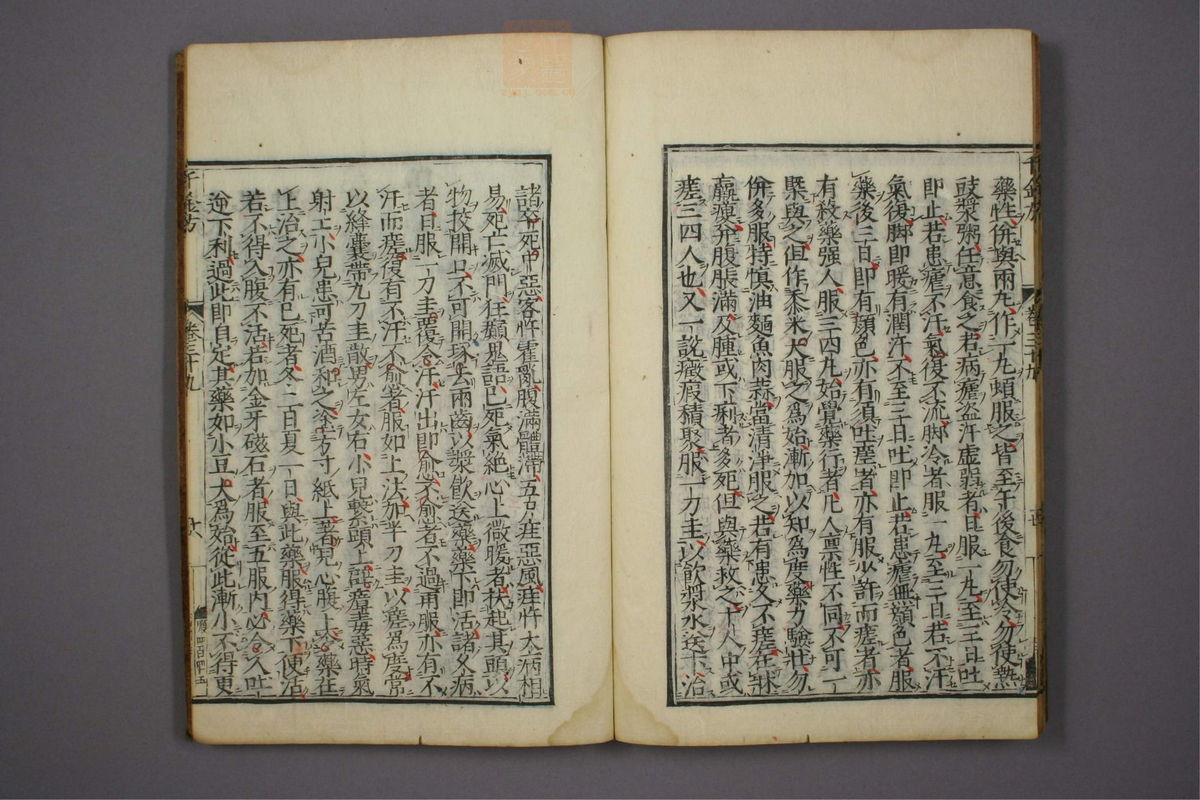 藥性併與兩丸作一丸頓服之皆至午後食勿使冷勿使熱
豉漿粥任意食之若病瘧盜汗虛弱者日服一丸至三日吐
即止若患瘧不汗氣復不流脚冷者服一丸至三日若不汗
氣復脚即暖有潤汗不至三日吐即止若患瘧無顏色者服
藥後三日即有顏色亦有須吐瘥者亦有服少許而瘥者亦
有殺藥强人服三四丸始覺藥行者凡人禀性不同不可一
槩與之但作黍米大服之為始漸加以知為度藥力驗壯勿
併多服特慎油麵魚肉蒜當清淨服之若有患久不瘥在牀
羸瘦并腹脹滿及腫或下痢者多死但與藥救之十人中或
瘥三四人也又一說癥瘕積聚服一刀圭以飲漿水送下治
諸卒死中惡客忤霍亂腹滿體滯五口疰惡風疰忤大病相
易死亡滅門狂癲鬼語已死氣絶心上微暖者扶起其頭以
物挍開口不可開琢去兩齒以漿飲送藥藥下即活諸久病
者日服一刀圭覆令汗汗出即愈不愈者不過再服亦有不
汗而瘥復有不汗不愈者服如上法加半刀圭以瘥為度常
以絳囊帶九刀圭散男左女右小兒繫頭上辟瘴毒惡時氣
射工小兒患可苦酒和之塗方寸紙上著兒心腹上藥在
上治之亦有已死者冬二百夏一日與此藥服得藥下便活
若不得入腹不活若加金牙磁石者服至五服內必令人吐
逆下利過此即自定其藥如小豆大為始從此漸小不得更
卷三十九